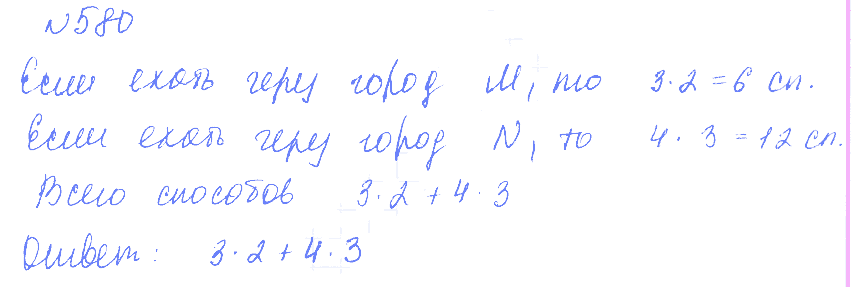 №580
Если ехать через город M, то 3·2=6 сп.
Если ехать через город N, то 4·3=12 сп.
Всего способов 3·2+4·3
Ответ: 3·2+4·3